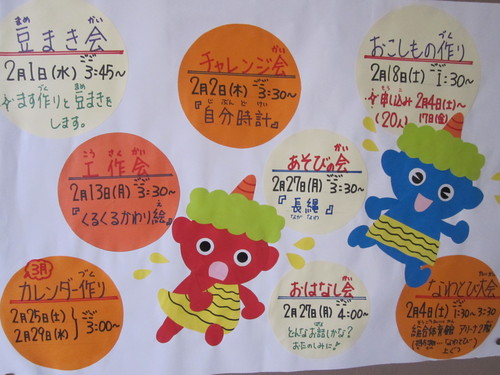 豆まき会
2月1日(水) 3:45〜
ます作りと豆まきを
します。
チャレンジ会
2月2日(木) 3:30〜
『自分時計』
おこしもの作り
2月18日(土) 1:30〜
申し込み 2月4日(土)〜
(20人) 17日(金)
工作会
2月13日(月) 3:30〜
『くるくるかわり絵』
あそびの会
2月27日(月) 3:30〜
『長縄』
3月
カレンダー作り
2月25日(土)
2月29日(水)
3:00〜
おはなし会
2月27日(月) 4:00〜
どんなお話しかな?
おたのしみに♪
なわとび大会
2月4日(土) 1:30〜3:30
総合体育館 アリーナ2階